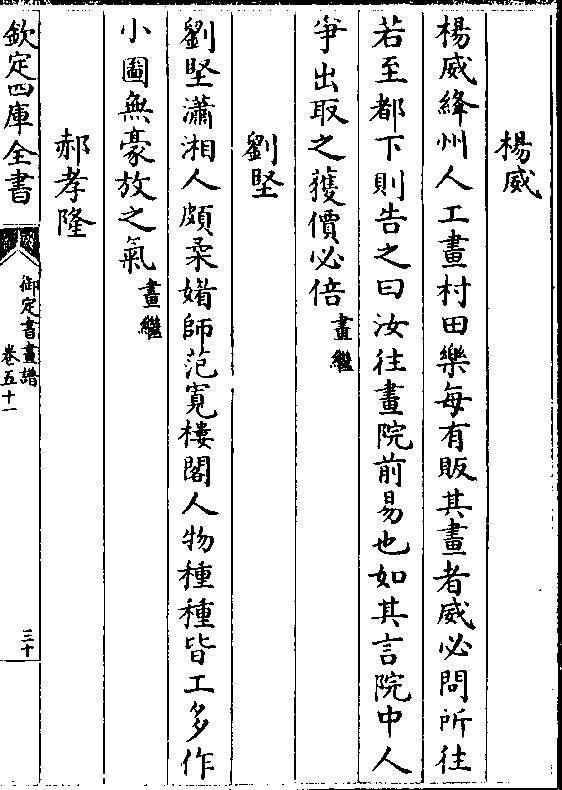 楊威
楊威絳州人工畫村田樂每有販其畫者威必問所往
若至都下則告之曰汝往畫院前易也如其言院中人
爭出取之獲價必倍畫繼
劉堅
劉堅瀟湘人頗柔媚師范寛樓閣人物種種皆工多作
小圖無豪放之氣畫繼
郝孝隆
欽定四庫全書
御定書畫譜
卷五十一
三十